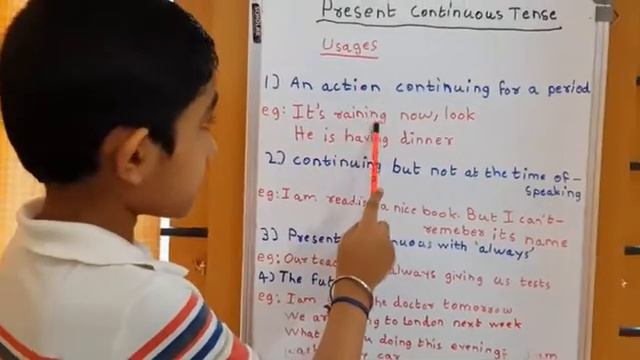 Present Continuous Tense
Usages
1) An action continuing for a period
eg: It's raining now, look
He is having dinner
2) continuing but not at the time of-
speaking
eg: I am reading a nice book. But I can't-
remeber its name
3) Present with 'always'
eg: Our always giving us tests
4) The
eg: I am the doctor tomorrow
We to London next week
doing this evening:
car